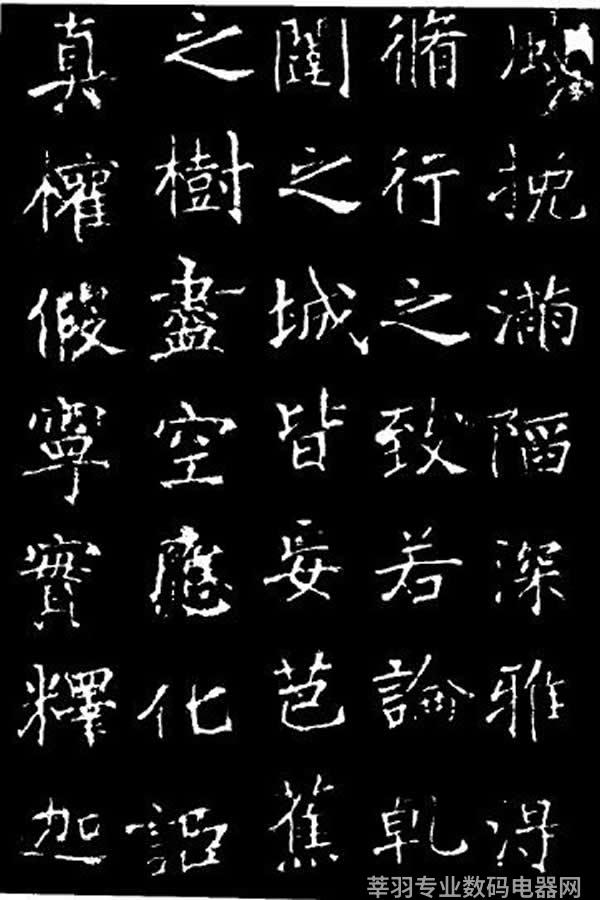 風挽滿陷深雅得
脩行之致若論乾
闥之城皆妄芭蕉
之樹盡空應化詎
真權假寧實釋迦
莘羽专业数码电器网